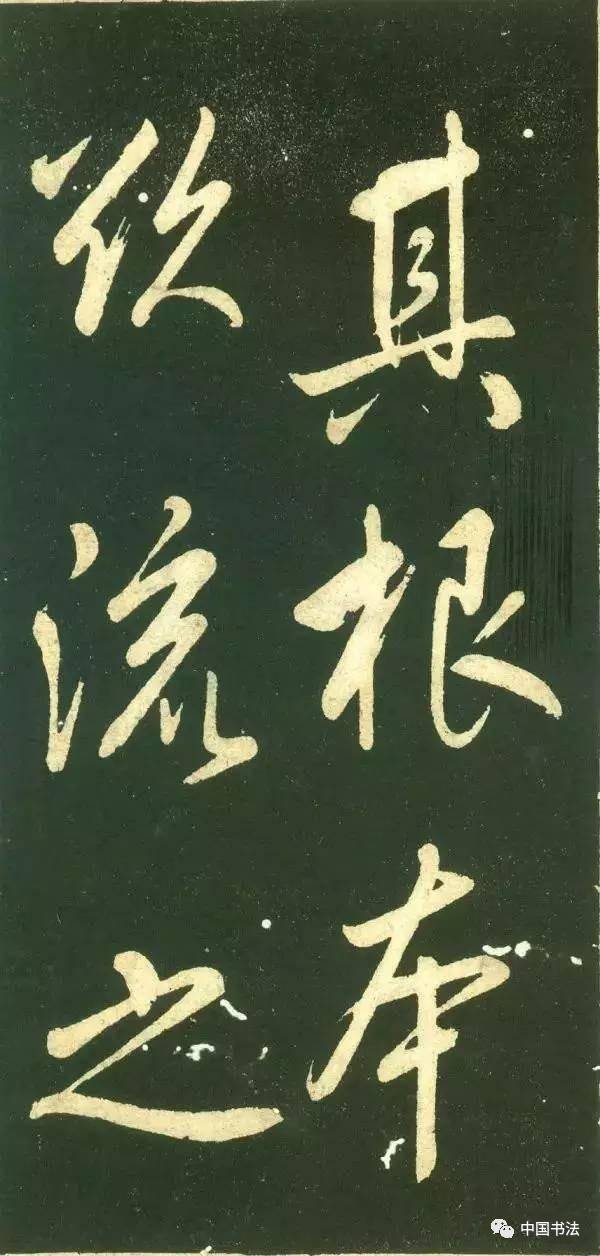 其根本
欲流之
中国书法